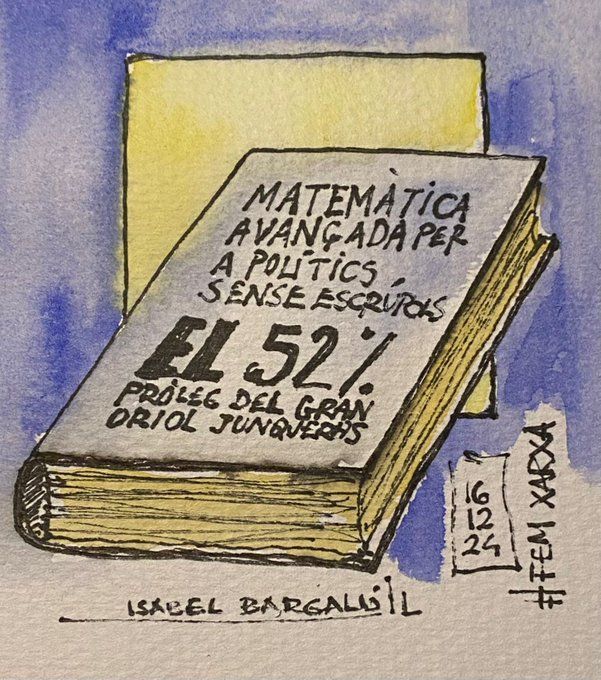 MATEMÀTICA
AVANÇADA PER
A POLÍTICS
SENSE ESCRÚPOLS
EL 52%
PRÒLEG DEL GRAN
ORIOL JUNQUERAS
16
12
24
#FEM XARXA
ISABEL BARGALLÓ